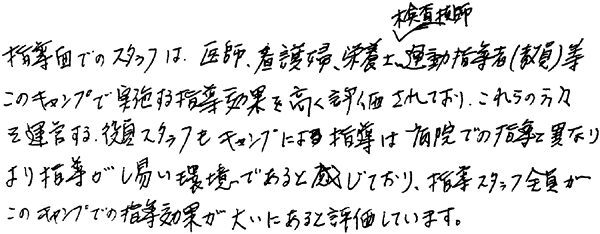 検査技師
指導面でのスタッフは、医師、看護婦、栄養士、運動指導者(教員)等
このキャンプで実施する指導効果を高く評価されており、これらの方々
を運営する、役員スタッフもキャンプによる指導は病院での指導と異なり
より指導がし易い環境であると感じており、指導スタッフ全員が
このキャンプでの指導効果が大いにあると評価しています。